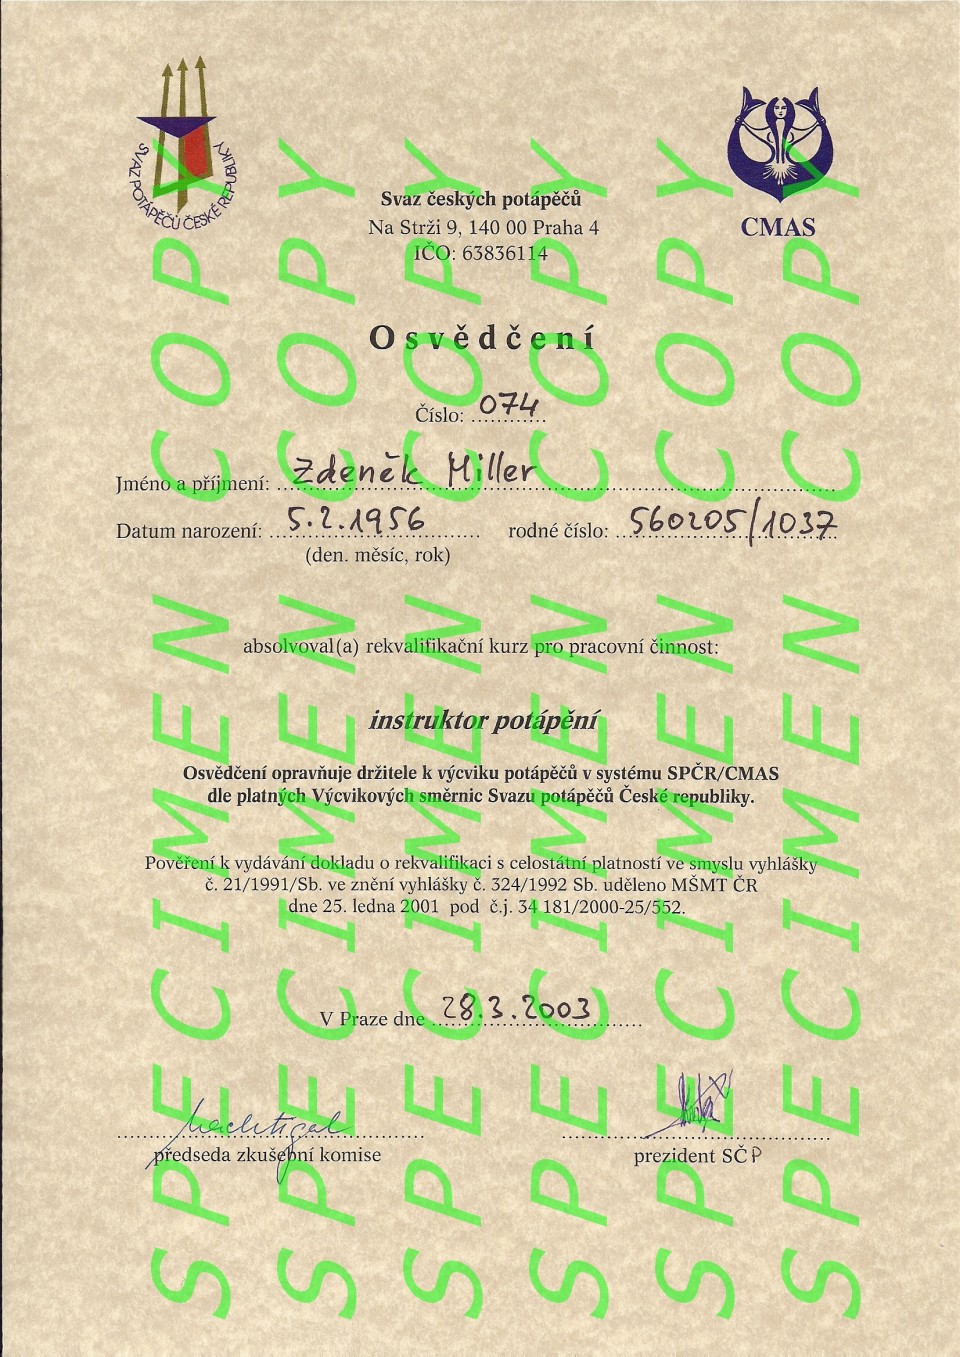 SVAZ POTÁPĚČŮ ČESKÉ REPUBLIKY
CMAS
Svaz českých potápěčů
Na Strži 9, 140 00 Praha 4
IČO: 63836114
Osvědčení
Číslo: 074
Jméno a příjmení: Zdeněk Miller
Datum narození: 5.2.1956 rodné číslo: 560205/1037
(den. měsíc, rok)
absolvoval(a) rekvalifikační kurz pro pracovní činnost:
instruktor potápění
Osvědčení opravňuje držitele k výcviku potápěčů v systému SPČR/CMAS
dle platných Výcvikových směrnic Svazu potápěčů České republiky.
Pověření k vydávání dokladu o rekvalifikaci s celostátní platností ve smyslu vyhlášky
č. 21/1991/Sb. ve znění vyhlášky č. 324/1992 Sb. uděleno MŠMT ČR
dne 25. ledna 2001 pod č.j. 34 181/2000-25/552.
V Praze dne 28.3.2003
předseda zkušební komise
prezident SČP
SPECIMEN COPY
SPECIMEN COPY
SPECIMEN COPY
SPECIMEN COPY
SPECIMEN COPY
SPECIMEN COPY